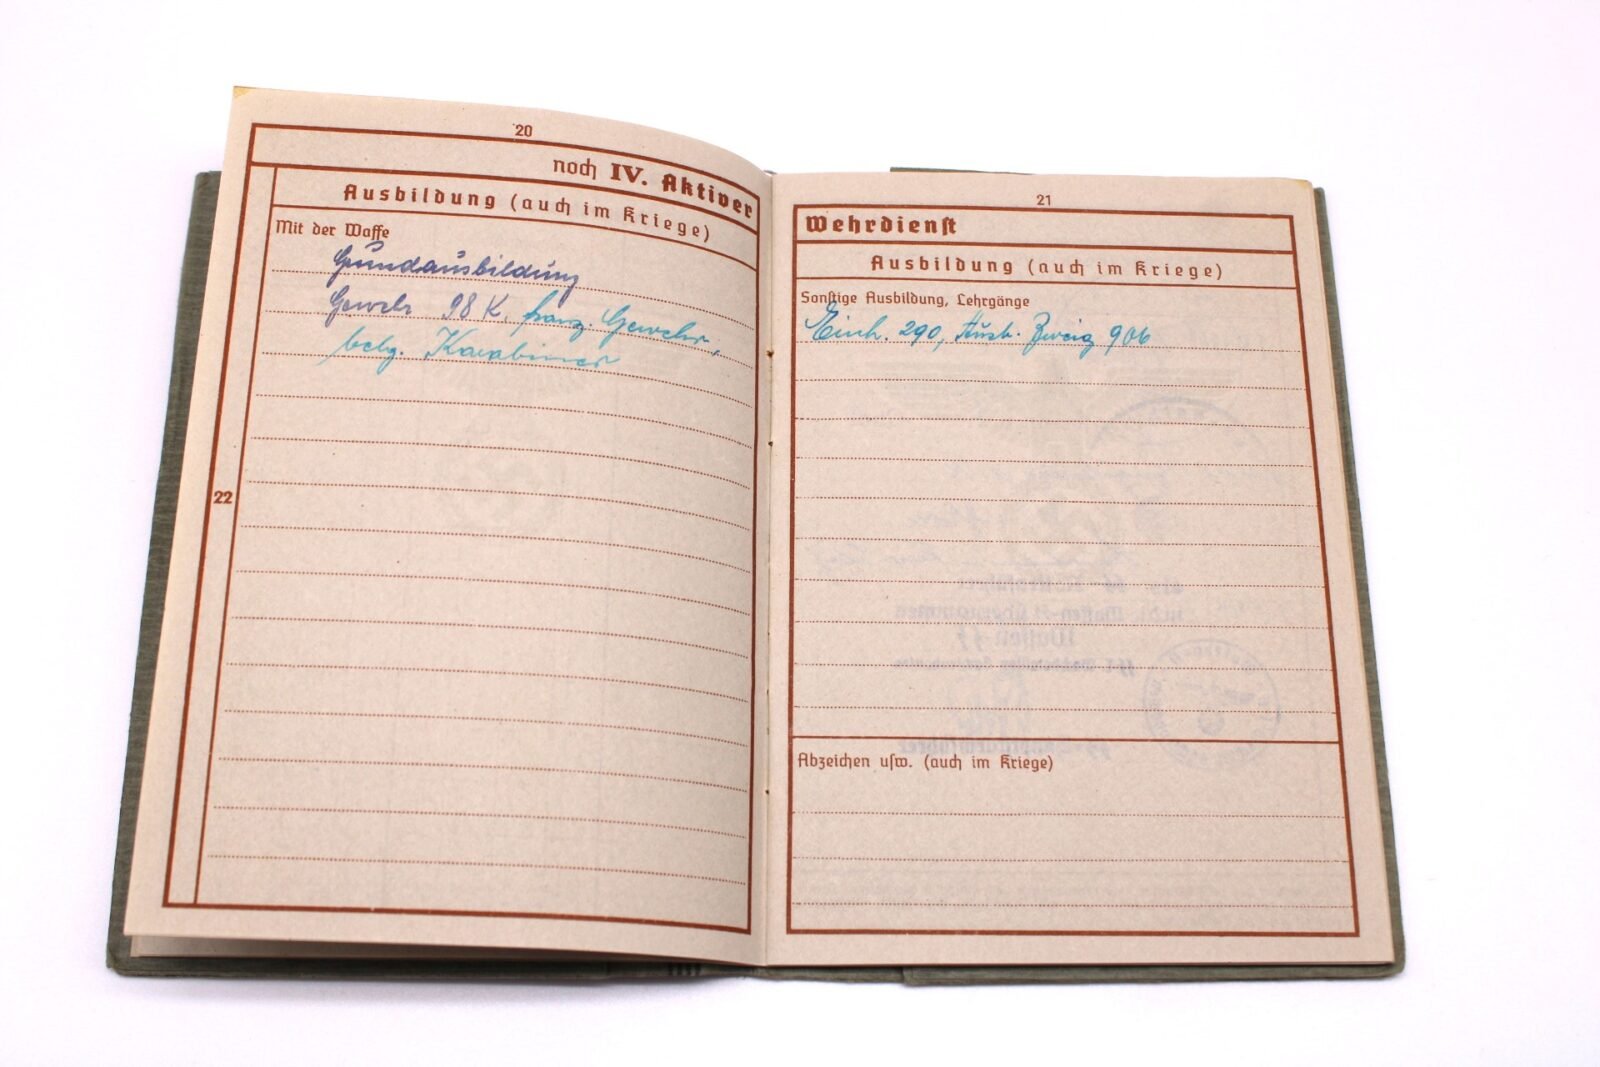 20
noch IV. Aktiver
Ausbildung (auch im Kriege)
Mit der Waffe
Grundausbildung
Gewehr 98 K, franz. Gewehr,
belg. Karabiner
22
21
Wehrdienst
Ausbildung (auch im Kriege)
Sonstige Ausbildung, Lehrgänge
Einh. 290, Ausb. Zweig 906
Abzeichen usw. (auch im Kriege)